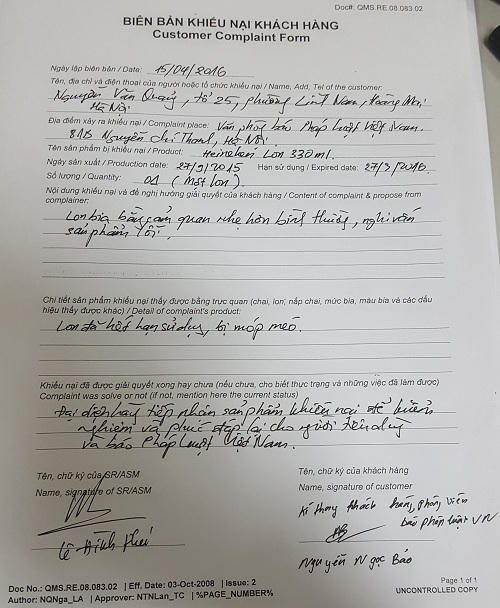 Doc#: QMS.RE.08.083.02
BIÊN BẢN KHIẾU NẠI KHÁCH HÀNG
Customer Complaint Form
Ngày lập biên bản / Date: 15/04/2016
Tên, địa chỉ và điện thoại của người hoặc tổ chức khiếu nại / Name, Add, Tel of the customer:
Nguyễn Văn Quang, tổ 25, phường Lĩnh Nam, Hoàng Mai,
Hà Nội
Địa điểm xảy ra khiếu nại / Complaint place: Văn phòng báo Pháp Luật Việt Nam.
81B Nguyễn Chí Thanh, Hà Nội.
Tên sản phẩm bị khiếu nại / Product: Heineken Lon 330ml.
Ngày sản xuất / Production date: 27/9/2015 Hạn sử dụng / Expired date: 27/3/2016.
Số lượng / Quantity: 01 (Một lon).
Nội dung khiếu nại và đề nghị hướng giải quyết của khách hàng / Content of complaint & propose from
complainer:
Lon bia bằng cảm quan nhẹ hơn bình thường, nghi vấn
sản phẩm lỗi.
Chi tiết sản phẩm khiếu nại thấy được bằng trực quan (chai, lon, nắp chai, mức bia, màu bia và các dấu
hiệu thấy được khác) / Detail of complaint's product:
Lon đã hết hạn sử dụng, bị móp méo.
Khiếu nại đã được giải quyết xong hay chưa (nếu chưa, cho biết thực trạng và những việc đã làm được)
Complaint was solve or not (if not, mention here the current status)
Đại diện hãng tiếp nhận sản phẩm khiếu nại để kiểm
nghiệm và phúc đáp lại cho người tiêu dùng
và báo Pháp Luật Việt Nam.
Tên, chữ ký của SR/ASM
Name, signature of SR/ASM
Lê Đình
Tên, chữ ký của khách hàng
Name, signature of customer
khách hàng, phóng viên
báo pháp luật VN
Nguyễn Ngọc Bảo
Doc No.: QMS.RE.08.083.02 | Eff. Date: 03-Oct-2008 | Issue: 2
Author: NQNga_LA | Approver: NTNLan_TC | %PAGE_NUMBER%
Page 1 of 1
UNCONTROLLED COPY